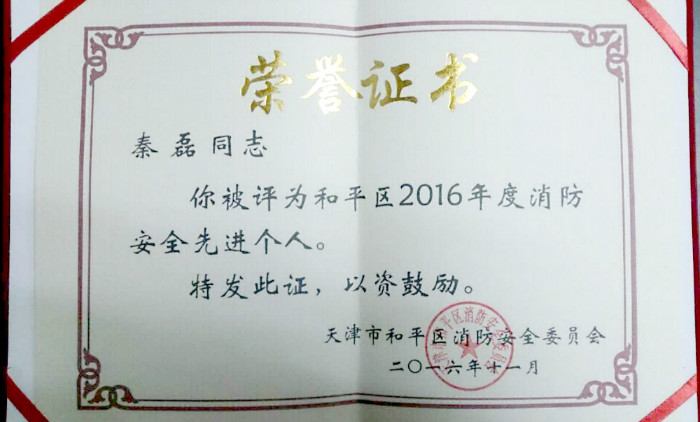 荣誉证书
秦磊同志
你被评为和平区2016年度消防
安全先进个人。
特发此证，以资鼓励。
天津市和平区消防安全委员会
二〇一六年十一月